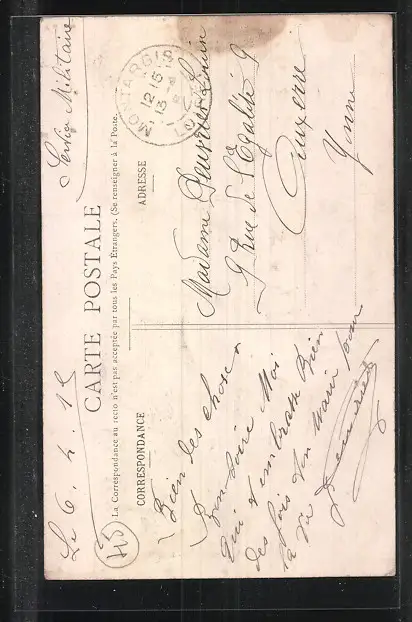 Le 6. 4. 15
Service Militaire
CARTE POSTALE
La Correspondance au recto n'est pas acceptée par tous les Pays Étrangers. (Se renseigner à la Poste.
CORRESPONDANCE
ADRESSE
MONTARGIS
12 15
LOIRET
Bien des choses
Moi
Qui t'embrasse Bien
des fois Ton Mari pour
la vie
Madame
9 Rue de l'Egalité 9
Auxerre
Yonne